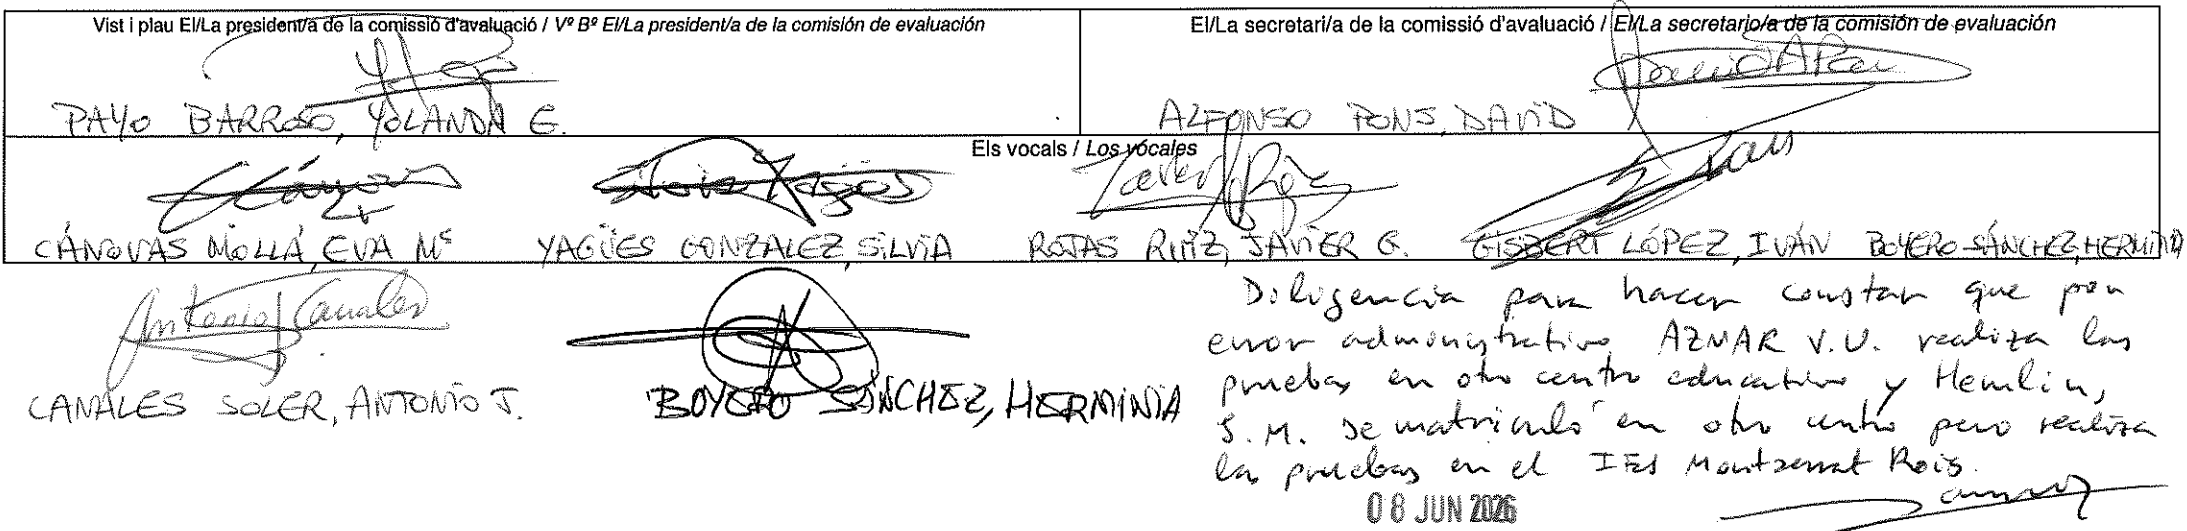 Vist i plau El/La president/a de la comissió d'avaluació / Vº Bº El/La president/a de la comisión de evaluación
El/La secretari/a de la comissió d'avaluació / El/La secretario/a de la comisión de evaluación
PAYO BARROSO, YOLANDA G.
ALFONSO PONS, DAVID
Els vocals / Los vocales
Javier Rojas
CÁNOVAS MOLLÁ, EVA Mª YAGÜES GONZALEZ, SILVIA ROJAS RUIZ, JAVIER G. GISBERT LÓPEZ, IVÁN BOYERO SÁNCHEZ, HERMINIA
Antonio Canales
CANALES SOLER, ANTONIO J.
BOYERO SÁNCHEZ, HERMINIA
Diligencia para hacer constar que por
error administrativo, AZNAR V.U. realiza las
pruebas en otro centro educativo y Hemlin,
S.M. se matriculó en otro centro pero realiza
las pruebas en el IES Montserrat Roig.
08 JUN 2026